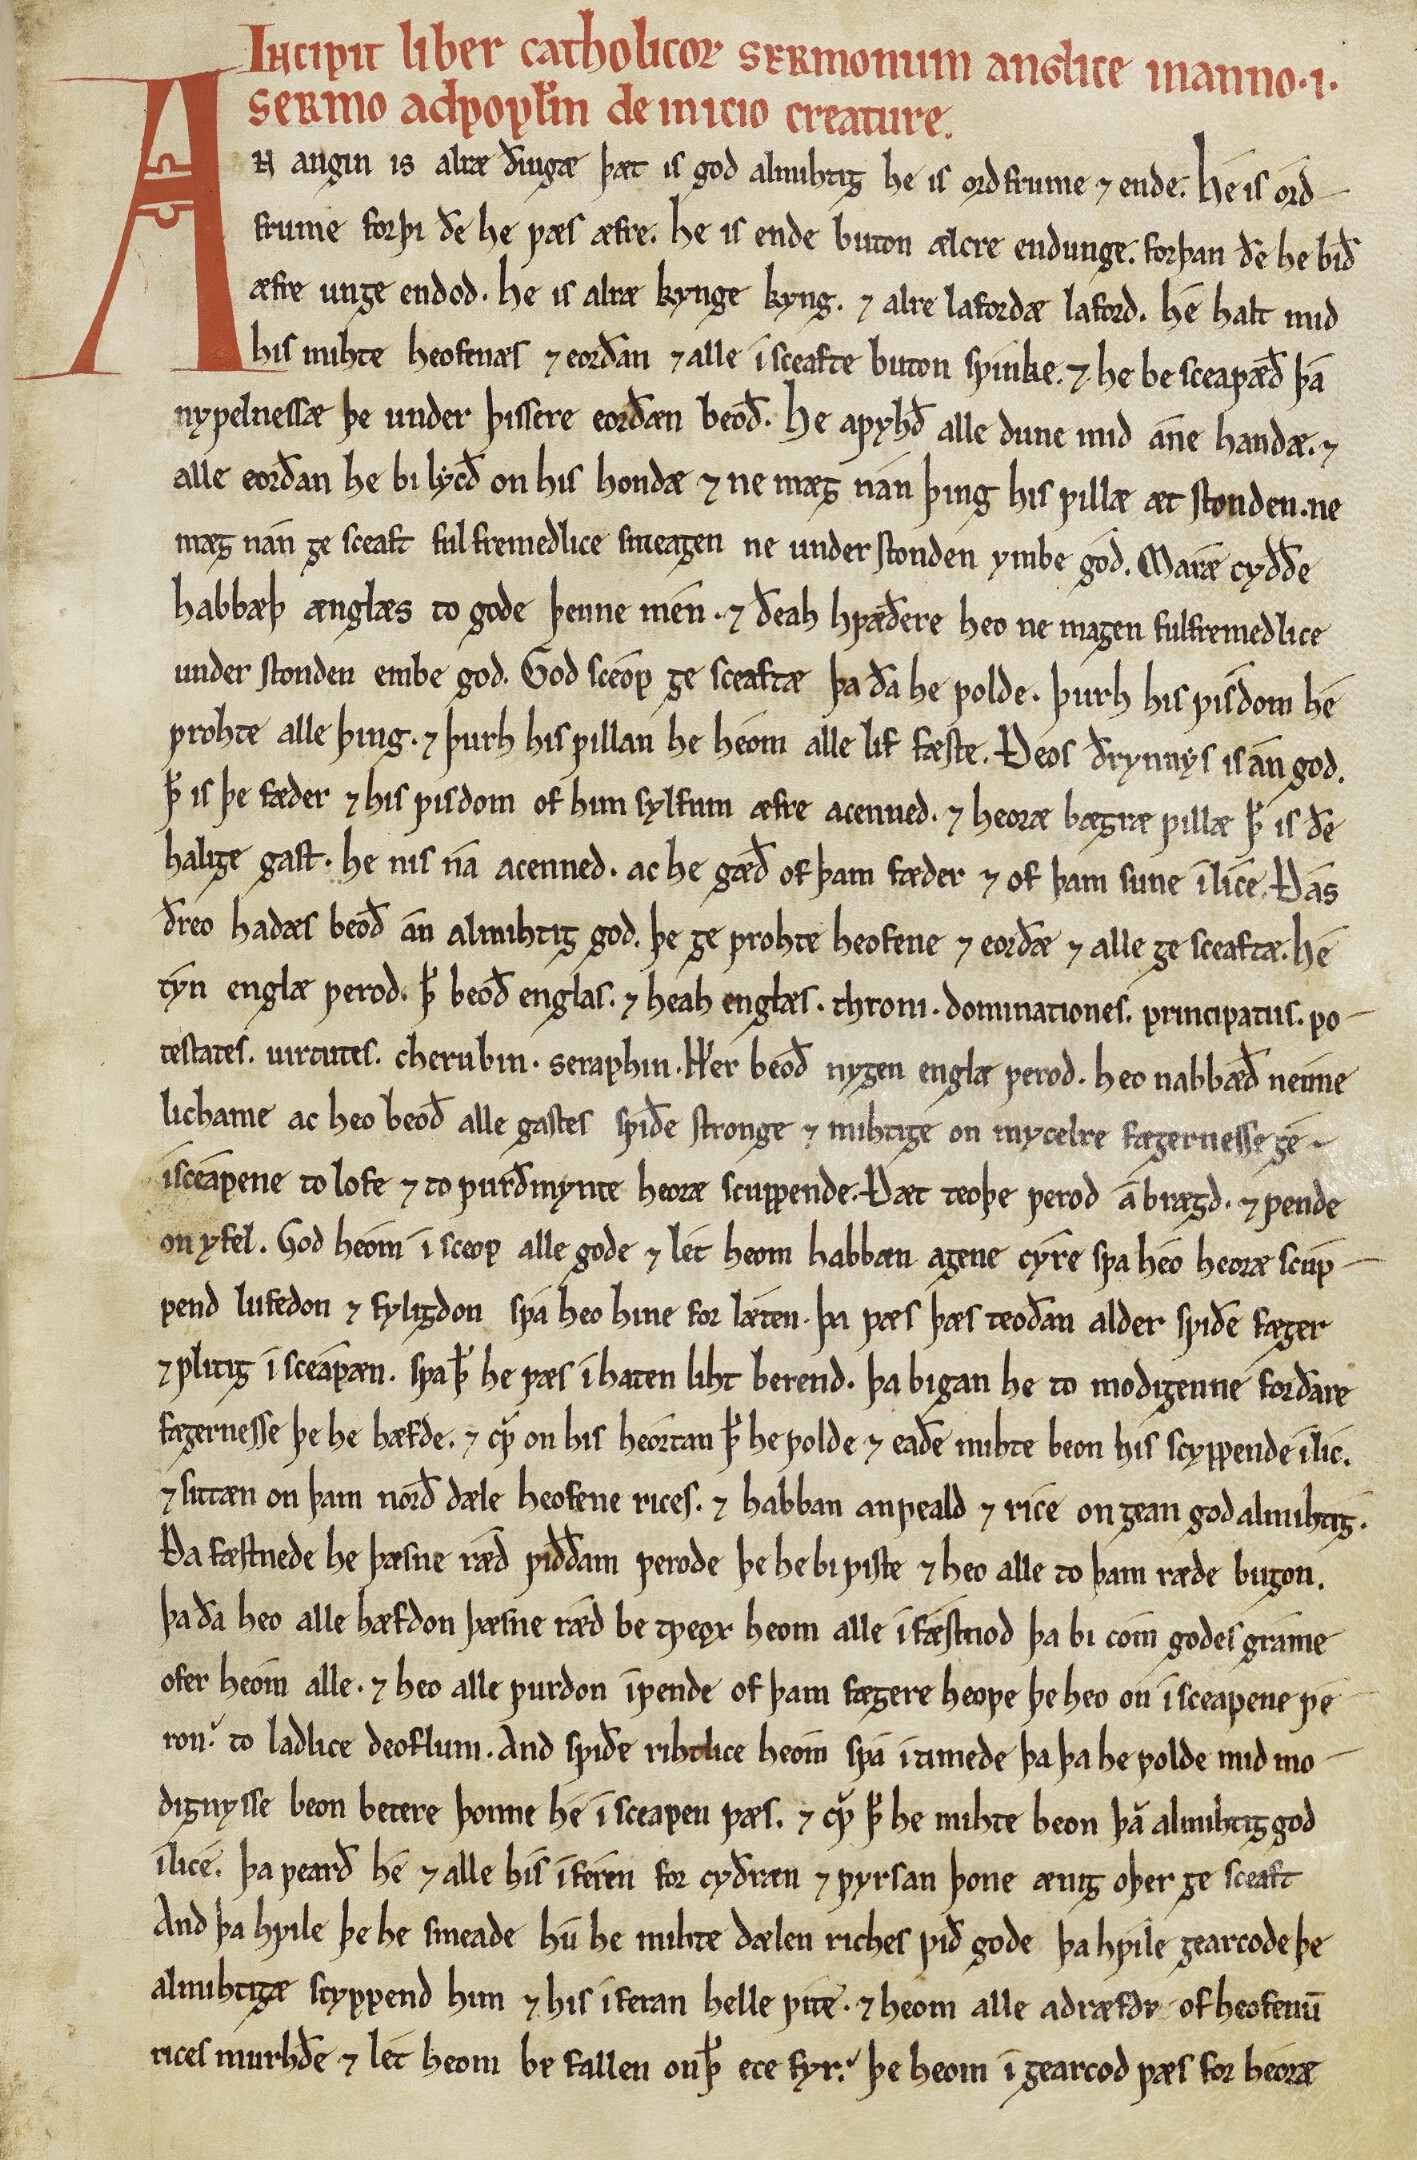 Incipit liber catholicoꝝ sermonum anglice in anno·i·
Sermo ad popl̄m de inicio creature.
AN angin is alræ ðingæ þæt is god almihtig he is ordfrume ⁊ ende. he is ord-
frume forþi ðe he ƿæs æfre. he is ende buton ælcre endunge. forþan ðe he bið
æfre unge endod. he is alræ kynge kyng. ⁊ alre lafordæ laford. he halt mid
his mihte heofenæs ⁊ eorðan ⁊ alle isceafte buton sƿinke. ⁊ he be sceaƿæð þa
nyƿelnessæ þe under þissere eorðæn beoð. He aƿyhð alle dune mid ane handæ. ⁊
alle eorðan he bi lycð on his hondæ ⁊ ne mæg nan þing his ƿillæ æt stonden. ne
mæg nan ge sceaft fulfremedlice smeagen ne under stonden ymbe god. Maræ cyððe
habbæþ ænglæs to gode þenne men. ⁊ ðeah hƿæðere heo ne magen fulfremedlice
under stonden embe god. God sceop ge sceaftæ þa ða he ƿolde. þurh his ƿisdom he
ƿrohte alle þing. ⁊ þurh his ƿillan he heom alle lif fæste. Ðeos ðrynnys is an god.
ꝥ is þe fæder ⁊ his ƿisdom of him sylfum æfre acenned. ⁊ heoræ bægræ ƿillæ ꝥ is ðe
halige gast. he nis na acenned. ac he gæð of þam fæder ⁊ of þam sune ilice. Ðas
ðreo hadæs beoð an almihtig god. þe ge ƿrohte heofene ⁊ eorðæ ⁊ alle ge sceaftæ. he
tyn englæ ƿerod. ꝥ beoð englas. ⁊ heah englæs. throni. dominationes. principatus. po-
testates. uirtutes. cherubin. seraphin. Her beoð nygen englæ ƿerod. heo nabbæð nenne
lichame ac heo beoð alle gastes sƿiðe stronge ⁊ mihtige on mycelre fægernesse ge-
isceapene to lofe ⁊ to ƿurðmynte heoræ scuppende. Ðæt teoþe ƿerod abrægd. ⁊ ƿende
on yfel. God heom isceop alle gode ⁊ let heom habbæn agene cyre sƿa heo heoræ scup-
pend lufedon ⁊ fyligdon sƿa heo hine for læten. þa ƿæs þæs teoðan alder sƿiðe fæger
⁊ ƿlitig isceapæn. sƿa ꝥ he ƿæs ihaten liht berend. þa bigan he to modigenne forðare
fægernesse þe he hæfde. ⁊ cƿ̄ on his heortan ꝥ he ƿolde ⁊ eaðe mihte beon his scyppende ilic.
⁊ sittæn on þam norð dæle heofene rices. ⁊ habban anƿeald ⁊ rice on gean god almihtig.
Ða fæstnede he þæsne ræd ƿiððam ƿerode þe he biƿiste ⁊ heo alle to þam ræde bugon.
þa ða heo alle hæfdon þæsne ræd be tƿeox heom alle ifæstnod þa bi com godes grame
ofer heom alle. ⁊ heo alle ƿurdon iƿende of þam fægere heoƿe þe heo on isceapene ƿe-
ron. to ladlice deoflum. And sƿiðe rihtlice heom sƿa itimede þa þa he ƿolde mid mo-
dignysse beon betere þonne he isceapen ƿæs. ⁊ cƿ̄ ꝥ he mihte beon þā almihtig god
ilice. þa ƿearð he ⁊ alle his iferen for cyðræn ⁊ ƿyrsan þone ænig oþer ge sceaft
And þa hƿile þe he smeade hu he mihte dælen riches ƿið gode þa hƿile gearcode þe
almihtigæ scyppend him ⁊ his iferan helle ƿite. ⁊ heom alle adræfde of heofenū
rices murhðe ⁊ let heom be fallen on ꝥ ece fyr. þe heom igearcod ƿæs for heoræ